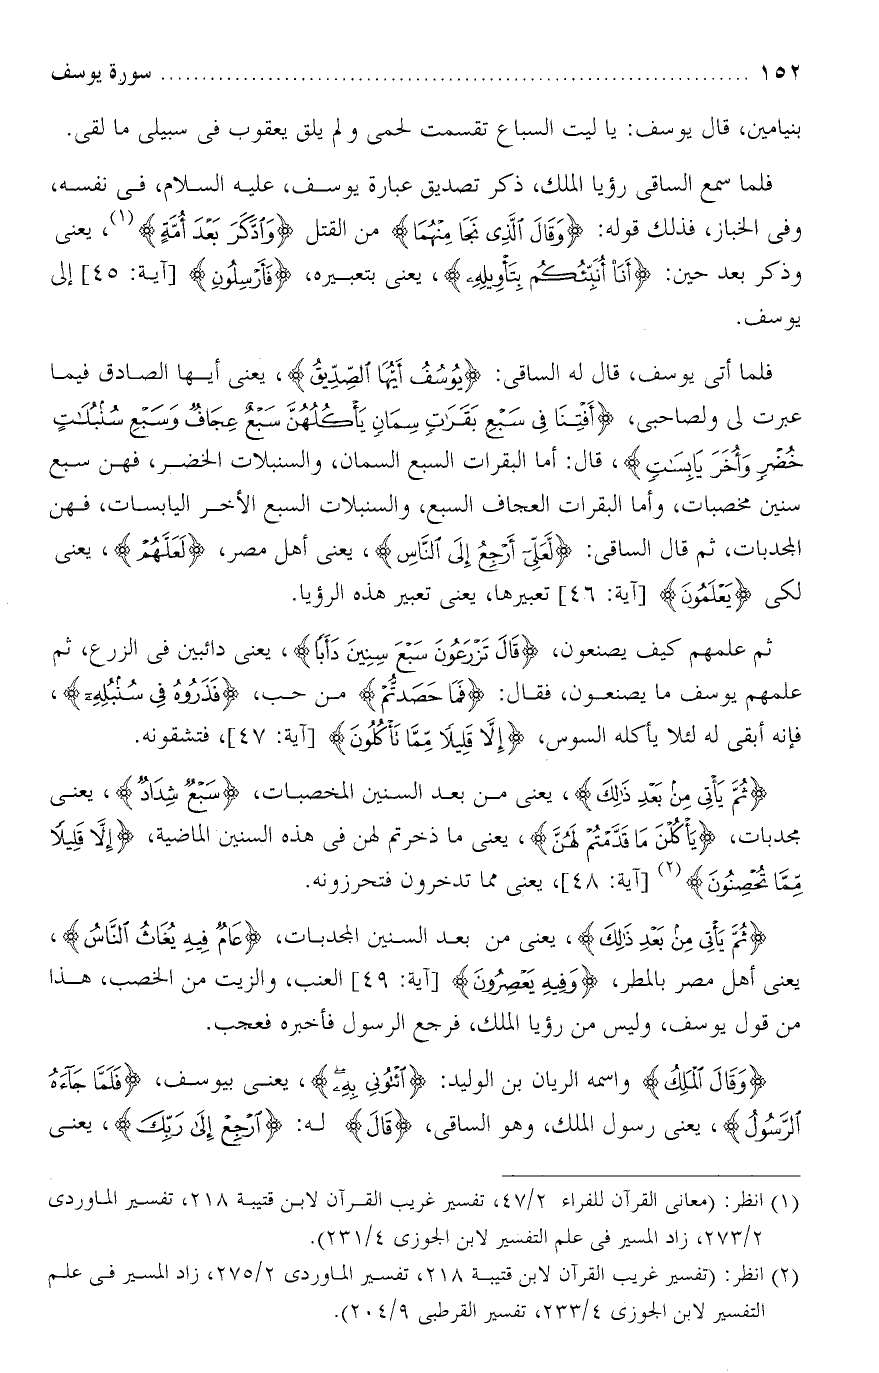 ١٥٢ ........................................................................ سورة يوسف
بنيامين، قال يوسف: يا ليت السباع تقسمت لحمى و لم يلق يعقوب فى سبيلى ما لقى.
فلما سمع الساقى رؤيا الملك، ذكر تصديق عبارة يوسف، عليه السلام، فى نفسه،
وفى الخباز، فذلك قوله: ﴿وَقَالَ ٱلَّذِى نَجَا مِنْهُمَا﴾ من القتل ﴿وَٱدَّكَرَ بَعْدَ أُمَّةٍ﴾(١)، يعنى
وذكر بعد حين: ﴿أَنَا۠ أُنَبِّئُكُم بِتَأْوِيلِهِۦ﴾، يعنى بتعبيره، ﴿فَأَرْسِلُونِ﴾ [آية: ٤٥] إلى
يوسف.
فلما أتى يوسف، قال له الساقى: ﴿يُوسُفُ أَيُّهَا ٱلصِّدِّيقُ﴾، يعنى أيها الصادق فيما
عبرت لى ولصاحبى، ﴿أَفْتِنَا فِى سَبْعِ بَقَرَٰتٍ سِمَانٍ يَأْكُلُهُنَّ سَبْعٌ عِجَافٌ وَسَبْعِ سُنۢبُلَٰتٍ
خُضْرٍ وَأُخَرَ يَابِسَٰتٍ﴾، قال: أما البقرات السبع السمان، والسنبلات الخضر، فهن سبع
سنين مخصبات، وأما البقرات العجاف السبع، والسنبلات السبع الأخر اليابسات، فهن
المجدبات، ثم قال الساقى: ﴿لَّعَلِّىٓ أَرْجِعُ إِلَى ٱلنَّاسِ﴾، يعنى أهل مصر، ﴿لَعَلَّهُمْ﴾، يعنى
لكى ﴿يَعْلَمُونَ﴾ [آية: ٤٦] تعبيرها، يعنى تعبير هذه الرؤيا.
ثم علمهم كيف يصنعون، ﴿قَالَ تَزْرَعُونَ سَبْعَ سِنِينَ دَأَبًا﴾، يعنى دائبين فى الزرع، ثم
علمهم يوسف ما يصنعون، فقال: ﴿فَمَا حَصَدتُّمْ﴾ من حب، ﴿فَذَرُوهُ فِى سُنۢبُلِهِۦٓ﴾،
فإنه أبقى له لئلا يأكله السوس، ﴿إِلَّا قَلِيلًا مِّمَّا تَأْكُلُونَ﴾ [آية: ٤٧]، فتشقونه.
﴿ثُمَّ يَأْتِى مِنۢ بَعْدِ ذَٰلِكَ﴾، يعنى من بعد السنين المخصبات، ﴿سَبْعٌ شِدَادٌ﴾، يعنى
مجدبات، ﴿يَأْكُلْنَ مَا قَدَّمْتُمْ لَهُنَّ﴾، يعنى ما ذخرتم لهن فى هذه السنين الماضية، ﴿إِلَّا قَلِيلًا
مِّمَّا تُحْصِنُونَ﴾(٢) [آية: ٤٨]، يعنى مما تدخرون فتحرزونه.
﴿ثُمَّ يَأْتِى مِنۢ بَعْدِ ذَٰلِكَ﴾، يعنى من بعد السنين المجدبات، ﴿عَامٌ فِيهِ يُغَاثُ ٱلنَّاسُ﴾،
يعنى أهل مصر بالمطر، ﴿وَفِيهِ يَعْصِرُونَ﴾ [آية: ٤٩] العنب، والزيت من الخصب، هذا
من قول يوسف، وليس من رؤيا الملك، فرجع الرسول فأخبره فعجب.
﴿وَقَالَ ٱلْمَلِكُ﴾ واسمه الريان بن الوليد: ﴿ٱئْتُونِى بِهِۦ﴾، يعنى بيوسف، ﴿فَلَمَّا جَآءَهُ
ٱلرَّسُولُ﴾، يعنى رسول الملك، وهو الساقى، ﴿قَالَ﴾ له: ﴿ٱرْجِعْ إِلَىٰ رَبِّكَ﴾، يعنى
(١) انظر: (معانى القرآن للفراء ٤٧/٢، تفسير غريب القرآن لابن قتيبة ٢١٨، تفسير الماوردى
٢٧٣/٢، زاد المسير فى علم التفسير لابن الجوزى ٢٣١/٤).
(٢) انظر: (تفسير غريب القرآن لابن قتيبة ٢١٨، تفسير الماوردى ٢٧٥/٢، زاد المسير فى علم
التفسير لابن الجوزى ٢٣٣/٤، تفسير القرطبى ٢٠٤/٩).